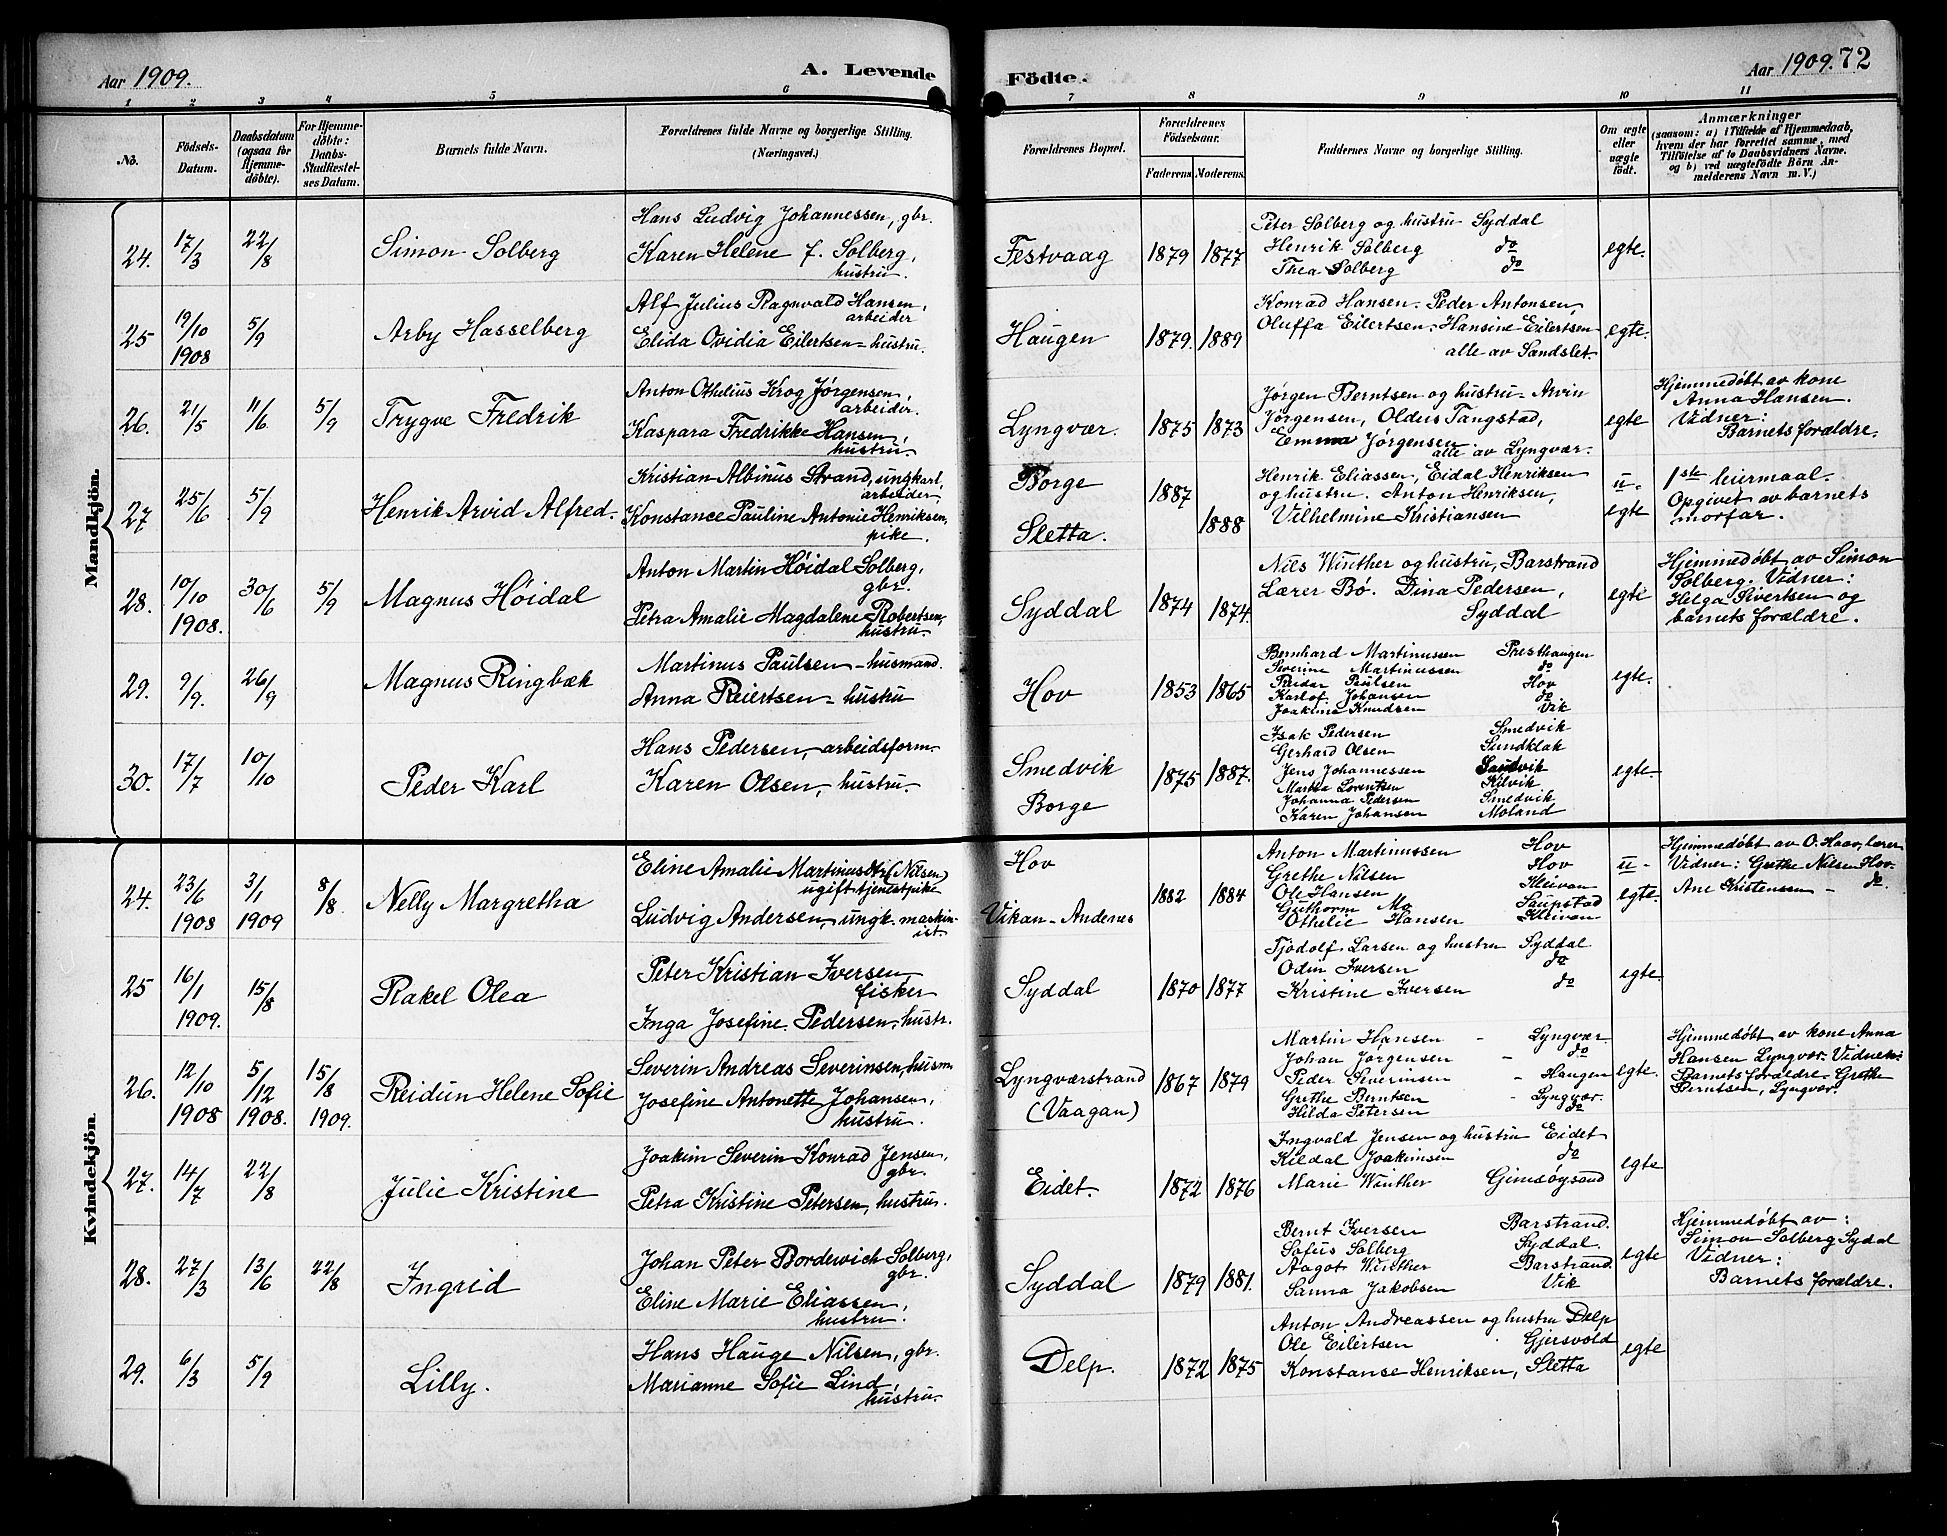 Aar 1909.
A. Levende
Födte.
Aar 1909. 72
1 2 3 4 5 6 7 8 9 10 11
No.
Födsels-
Datum.
Daabsdatum
(ogsaa for
Hjemme-
döbte).
For Hjemme-
döbte:
Daabs-
Stadfæstel-
ses Datum.
Barnets fulde Navn.
Forældrenes fulde Navne og borgerlige Stilling.
(Næringsvei.)
Forældrenes Bopæl.
Forældrenes
Födselsaar.
Faderens Moderens
Faddernes Navne og borgerlige Stilling.
Om ægte
eller
uægte
födt.
Anmærkninger
(saasom: a) i Tilfælde af Hjemmedaab,
hvem der har forrettet samme, med
Tilföielse af to Daabsvidners Navne.
og b) ved uægtefödte Börn An-
melderens Navn m. V.)
Mandkjön.
24. 17/3 22/8 Simon Solberg
Hans Ludvig Johannessen, gbr.
Karen Helene f. Solberg,
hustru.
Festvaag 1879 1877
Peter Solberg og hustru Syddal
Henrik Solberg do
Thea Solberg do
egte.
25 19/10 5/9 Arby Hasselberg
1908
Alf Julius Ragnvald Hansen,
arbeider
Elida Ovidia Eilertsen - hustru.
Haugen 1879. 1889
Konrad Hansen. Peder Antonsen,
Oluffa Eilertsen. Hansine Eilertsen
alle av Sandslet.
egte.
26. 21/5 11/6 5/9 Trygve Fredrik
Anton Othelius Krog Jørgensen,
arbeider.
Kaspara Fredrikke Hansen,
hustru.
Lyngvær. 1875 1873
Jørgen Berntsen og hustru - Arvin
Jørgensen, Oldus Tangstad,
Emma Jørgensen
alle av Lyngvær.
egte
Hjemmedøbt av kone
Anna Hansen.
Vidner:
Barnets forældre.
27 25/6 5/9 Henrik Arvid Alfred.
Kristian Albinus Strand, ungkarl,
arbeider
Konstance Pauline Antonie Henriksen,
pike.
Borge 1887
Sletta. 1888
Henrik Eliassen, Eidal Henriksen
og hustru. Anton Henriksen,
Vilhelmine Kristiansen
u-
egte
1ste leiermaal.
Opgivet av barnets
morfar.
28. 10/10 30/6 5/9 Magnus Høidal
1908.
Anton Martin Høidal Solberg,
gbr.
Petra Amalie Magdalene Robertsen,
hustru.
Syddal 1874 1874.
Nils Winther og hustru, Barstrand
Lærer Bø. Dina Pedersen,
Syddal
egte
Hjemmedøbt av Simon
Solberg. Vidner:
Helga Sivertsen og
barnets forældre.
29. 9/9. 26/9 Magnus Ringbæk
Martinus Paulsen - husmand.
Anna Reiertsen - hustru
Hov 1853 1865
Bernhard Martinussen Presthaugen
Severine Martinussen do
Reidar Paulsen Hov
Karlof Johansen do
Joakime Knudsen Vik
egte.
30. 17/7 10/10 Peder Karl
Hans Pedersen, arbeidsform.
Karen Olsen, hustru.
Smedvik
Borge 1875 1887.
Isak Pedersen Smedvik
Gerhard Olsen Sundklak
Jens Johannessen Sandvik
Martha Lorentsen Kilvik
Johanna Pedersen Smedvik
Karen Johansen Moland
egte.
Kvindekjön.
24. 23/6 3/1 8/8 Nelly Margretha
1908 1909
Eline Amalie Martinusdtr (Nilsen)
ugift tjenestpike
Ludvig Andersen, ungk. maskin-
ist.
Hov
Vikan - Andenes 1882 1884
Anton Martinussen Hov
Grethe Nilsen Hov
Ole Hansen Kleivan
Guthorm Mo Saupstad
Othelie Hansen Kleivan
u-
egte.
Hjemmedøbt av O. Haav, lærer
Vidner: Grethe Nilsen Hov.
Ane Kristensen - do.
25 16/1 15/8 Rakel Olea
1909.
Peter Kristian Iversen
fisker
Inga Josefine Pedersen, hustr.
Syddal 1870 1877
Tjodolf Larsen og hustru Syddal
Odin Iversen do
Kristine Iversen do
egte.
26. 12/10 5/12 15/8 Reidun Helene Sofie
1908 1908. 1909.
Severin Andreas Severinsen, husm.
Josefine Antonette Johansen,
hustru.
Lyngværstrand
(Vaagan) 1867 1879
Martin Hansen - Lyngvær
Johan Jørgensen - do
Peder Severinsen - Haugen
Grethe Berntsen - Lyngvær.
Hilda Petersen do
egte.
Hjemmedøbt av kone Anna
Hansen Lyngvær. Vidner:
Barnets forældre. Grethe
Berntsen, Lyngvær.
27. 14/7 22/8 Julie Kristine
Joakim Severin Konrad Jensen,
gbr.
Petra Kristine Petersen, hustru.
Eidet. 1872 1876
Ingvald Jensen og hustru Eidet
Kildal Joakimsen do
Marie Winther Gimsøysand
egte
28. 27/3 13/6 22/8 Ingrid
Johan Peter Bordewich Solberg,
gbr.
Eline Marie Eliassen,
hustru.
Syddal 1879 1881.
Bernt Iversen Barstrand.
Sofus Solberg Syddal.
Aagot Winther Barstrand
Sanna Jakobsen Vik
egte
Hjemmedøbt av:
Simon Solberg Sydal
Vidner:
Barnets forældre.
29. 6/3 5/9 Lilly.
Hans Hauge Nilsen, gbr.
Marianne Sofie Lind,
hustru.
Delp. 1872 1875
Anton Andreassen og hustru Delp
Ole Eilertsen Gjersvold
Konstanse Henriksen, Sletta
egte